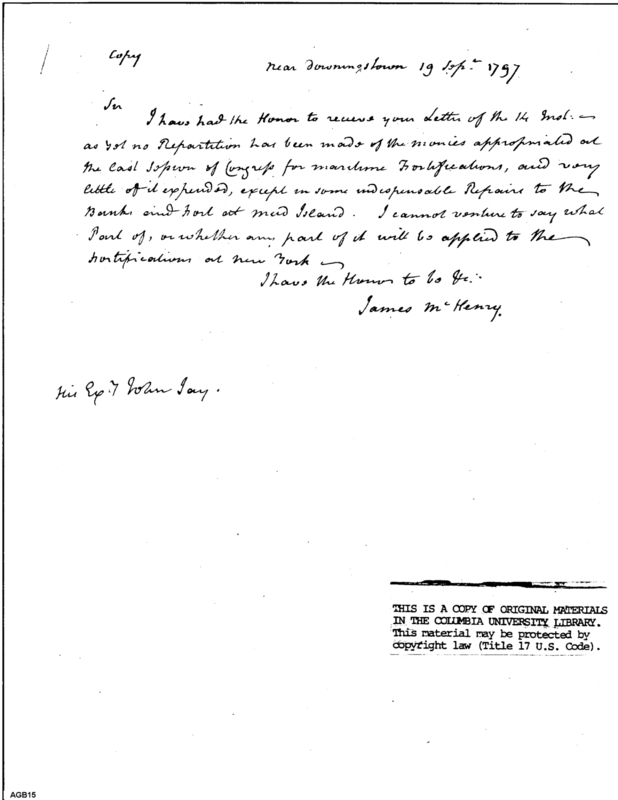 Copy
near Downingstown 19 Sepr. 1797
Sir
I have had the Honor to receive your Letter of the 14 Inst. –
as yet no Repartition has been made of the monies appropriated at
the last Session of Congress for maritime Fortifications, and very
little of it expended, except in some indispensable Repairs to the
Banks and Fort at mud Island. I cannot venture to say what
Part of, or whether any part of it will be applied to the
Fortifications at new York –
I have the Honor to be &c.
James McHenry.
His Exy. John Jay.
THIS IS A COPY OF ORIGINAL MATERIALS
IN THE COLUMBIA UNIVERSITY LIBRARY.
This material may be protected by
copyright law (Title 17 U.S. Code).
AGB15